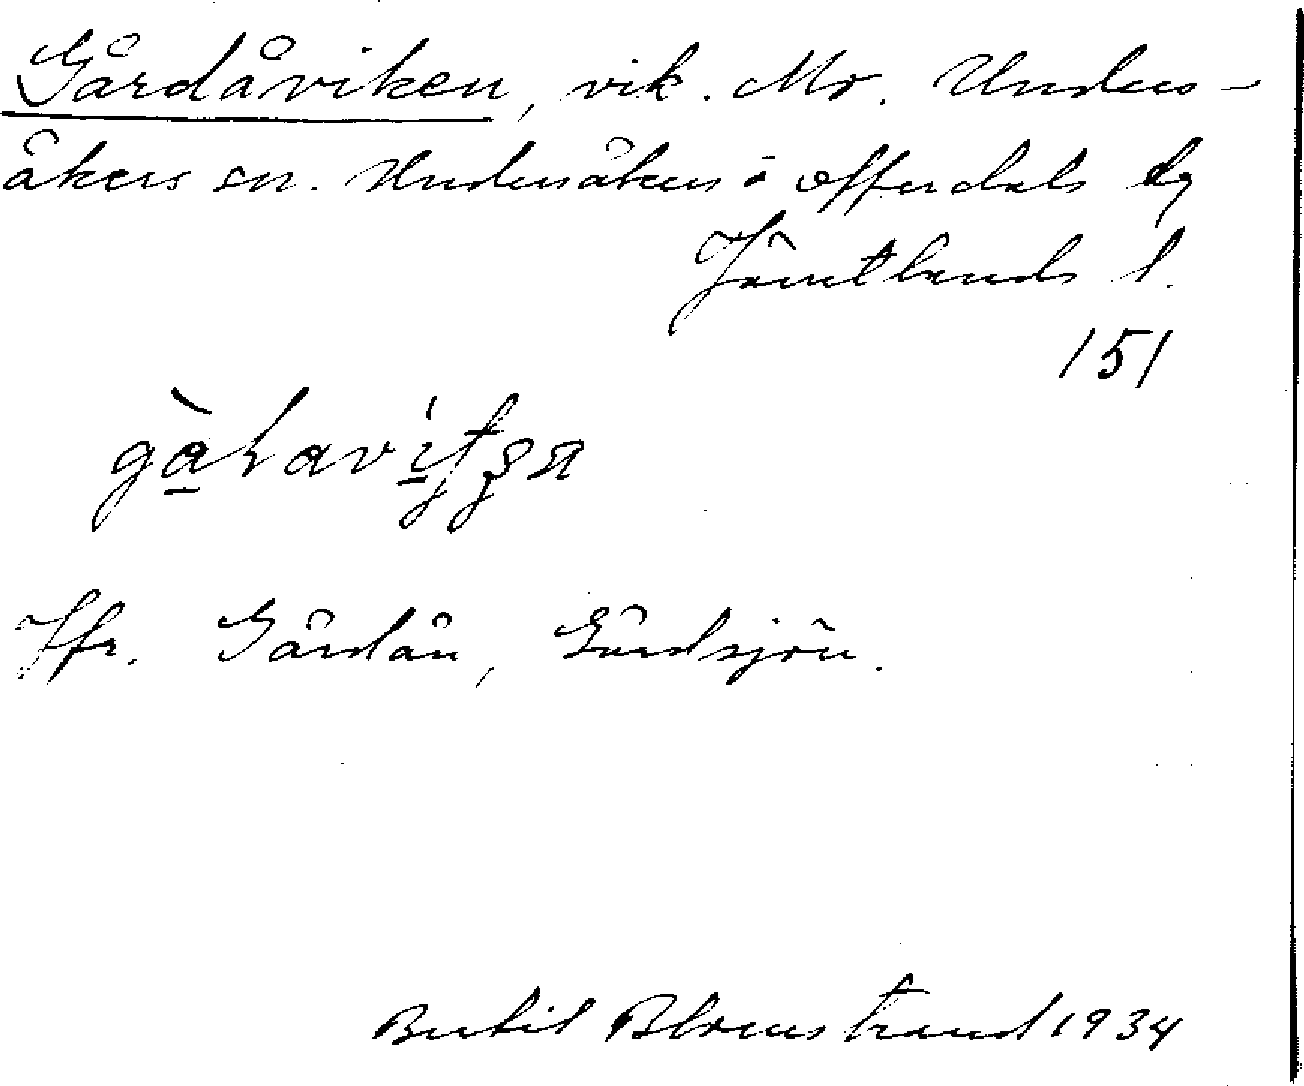 Gårdåviken, vik. Mo. Unders-
åkers sn. Undersåkers o Offerdals tg
Jämtlands l.
151
Jfr. Gårdån, Gårdsjön.
Bertil Blomstrand 1934